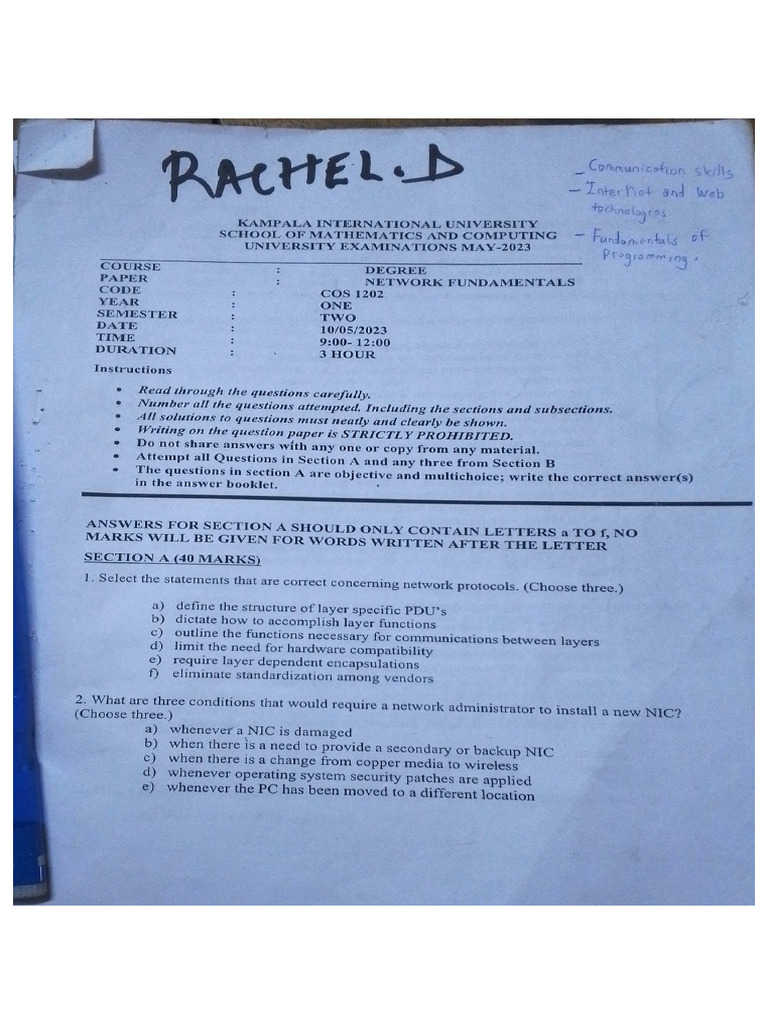 RACHEL.D
- Communication skills
- Internet and Web
technologies
- Fundamentals of
Programming.
KAMPALA INTERNATIONAL UNIVERSITY
SCHOOL OF MATHEMATICS AND COMPUTING
UNIVERSITY EXAMINATIONS MAY-2023
COURSE : DEGREE
PAPER : NETWORK FUNDAMENTALS
CODE : COS 1202
YEAR : ONE
SEMESTER : TWO
DATE : 10/05/2023
TIME : 9:00- 12:00
DURATION : 3 HOUR
Instructions
• Read through the questions carefully.
• Number all the questions attempted. Including the sections and subsections.
• All solutions to questions must neatly and clearly be shown.
• Writing on the question paper is STRICTLY PROHIBITED.
• Do not share answers with any one or copy from any material.
• Attempt all Questions in Section A and any three from Section B
• The questions in section A are objective and multichoice; write the correct answer(s)
in the answer booklet.
ANSWERS FOR SECTION A SHOULD ONLY CONTAIN LETTERS a TO f, NO
MARKS WILL BE GIVEN FOR WORDS WRITTEN AFTER THE LETTER
SECTION A (40 MARKS)
1. Select the statements that are correct concerning network protocols. (Choose three.)
a) define the structure of layer specific PDU's
b) dictate how to accomplish layer functions
c) outline the functions necessary for communications between layers
d) limit the need for hardware compatibility
e) require layer dependent encapsulations
f) eliminate standardization among vendors
2. What are three conditions that would require a network administrator to install a new NIC?
(Choose three.)
a) whenever a NIC is damaged
b) when there is a need to provide a secondary or backup NIC
c) when there is a change from copper media to wireless
d) whenever operating system security patches are applied
e) whenever the PC has been moved to a different location